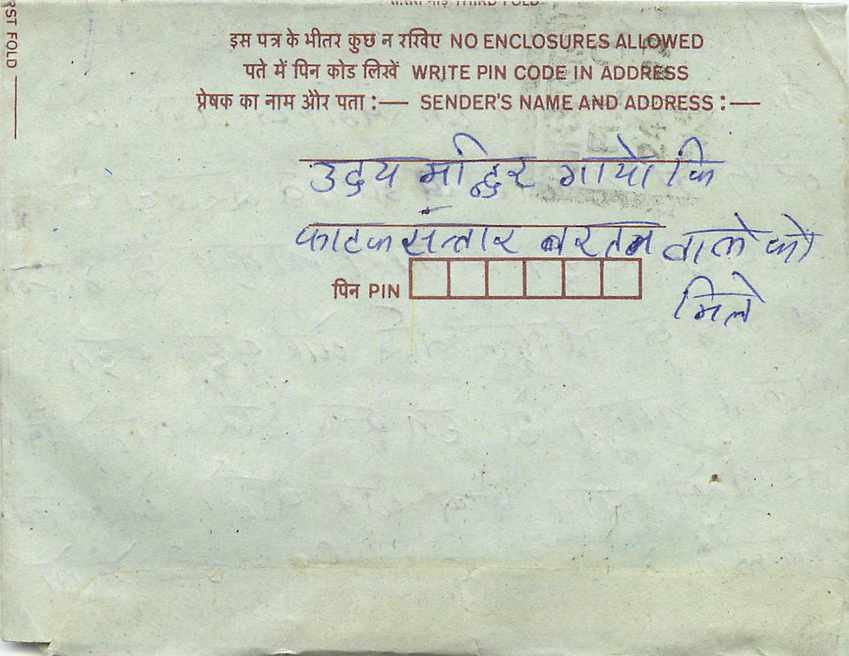 तीसरा मोड़ THIRD FOLD
RST FOLD
इस पत्र के भीतर कुछ न रखिए NO ENCLOSURES ALLOWED
पते में पिन कोड लिखें WRITE PIN CODE IN ADDRESS
प्रेषक का नाम और पता :— SENDER'S NAME AND ADDRESS :—
उदय मन्दिर गायो कि
फाटक सत्तार बरतन वाले को
पिन PIN
मिले